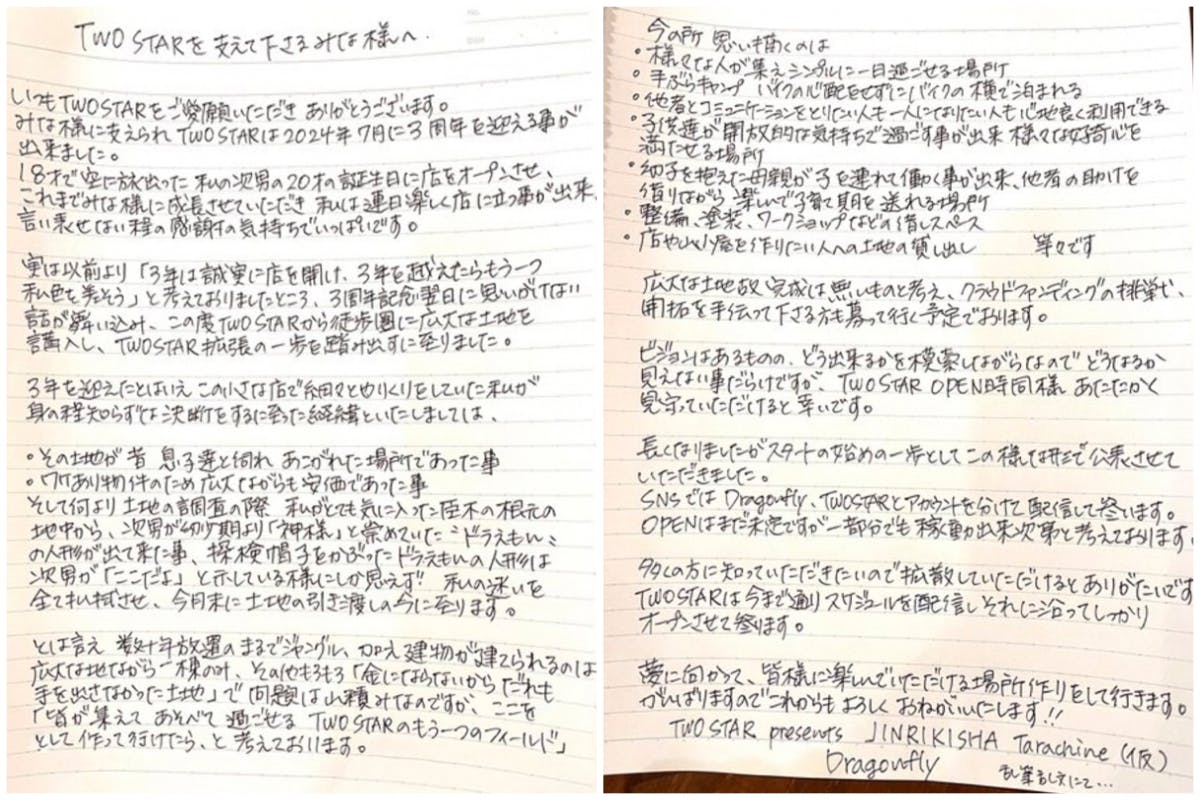 TWO STARを支えて下さるみな様へ.
いつもTWOSTARをご愛顧いただき ありがとうございます。
みな様に支えられ TWOSTARは2024年7月に3周年を迎える事が
出来ました。
18才で空に旅出った 私の次男の20才の誕生日に店をオープンさせ、
これまでみな様に成長させていただき 私は連日楽しく店に立つ事が出来、
言い表せない程の感謝の気持ちでいっぱいです。
実は以前より「3年は誠実に店を開け、3年を越えたらもう一つ
私色を差そう」と考えておりましたところ、3周年記念翌日に思いがけない
話が舞い込み、この度TWOSTARから徒歩圏に広大な土地を
購入し、TWOSTAR拡張の一歩を踏み出すに至りました。
3年を迎えたとはいえ この小さな店で細々とやりくりをしていた私が
身の程知らずな決断をするに至った経緯といたしましては、
・その土地が昔 息子達と訪れ あこがれた場所であった事
・ワケあり物件のため広大ながらも安価であった事
そして何より土地の調査の際 私がとても気に入った巨木の根元の
地中から、次男が幼少期より「神様」と崇めていた"ドラえもん"
の人形が出て来た事、探検帽子をかぶったドラえもんの人形は
次男が「ここだよ」と示している様にしか思えず 私の迷いを
全て払拭させ、今月末に土地の引き渡しの今に至ります。
とは言え 数十年放置のまるでジャングル、加え建物が建てられるのは
広大な地ながら一棟のみ、その他もろもろ「金にならないからだれも
手を出さなかった土地」で問題は山積みなのですが、ここを
「皆が集えて あそべて 過ごせる TWOSTARのもう一つのフィールド」
として作って行けたら、と 考えております。
今の所 思い描くのは
・様々な人が集え シンプルに一日過ごせる場所
・手ぶらキャンプ バイクの心配をせずにバイクの横で泊まれる
・他者とコミュニケーションをとりたい人も一人になりたい人も心地良く利用できる
・子供達が開放的な気持ちで過ごす事が出来 様々な好奇心を
満たせる場所
・幼子を抱えた母親が子を連れて働く事が出来、他者の助けを
借りながら 楽しんで子育て期を送れる場所
・整備、塗装、ワークショップなどの借しスペース
・店や山小屋を作りたい人への土地の貸し出し 等々です
広大な土地故 完成は無いものと考え、クラウドファンディングの挑戦や、
開拓を手伝って下さる方も募って行く予定でおります。
ビジョンはあるものの、どう出来るかを模索しながらなので どうなるか
見えない事だらけですが、TWOSTAR OPEN時同様 あたたかく
見守っていただけると幸いです。
長くなりましたがスタートの始めの一歩として この様な形で公表させて
いただきました。
SNSでは Dragonfly、TWOSTARとアカウントを分けて配信して参ります。
OPENはまだ未定ですが一部分でも稼動出来次第と考えております。
多くの方に知っていただきたいので拡散していただけるとありがたいです
TWOSTARは今まで通りスケジュールを配信し それに沿ってしっかり
オープンさせて参ります。
夢に向かって、皆様に楽しんでいただける場所作りをして行きます。
がんばりますのでこれからも よろしく おねがいいたします!!
TWO STAR presents JINRIKISHA Tarachine(仮)
Dragonfly 乱筆乱文にて…